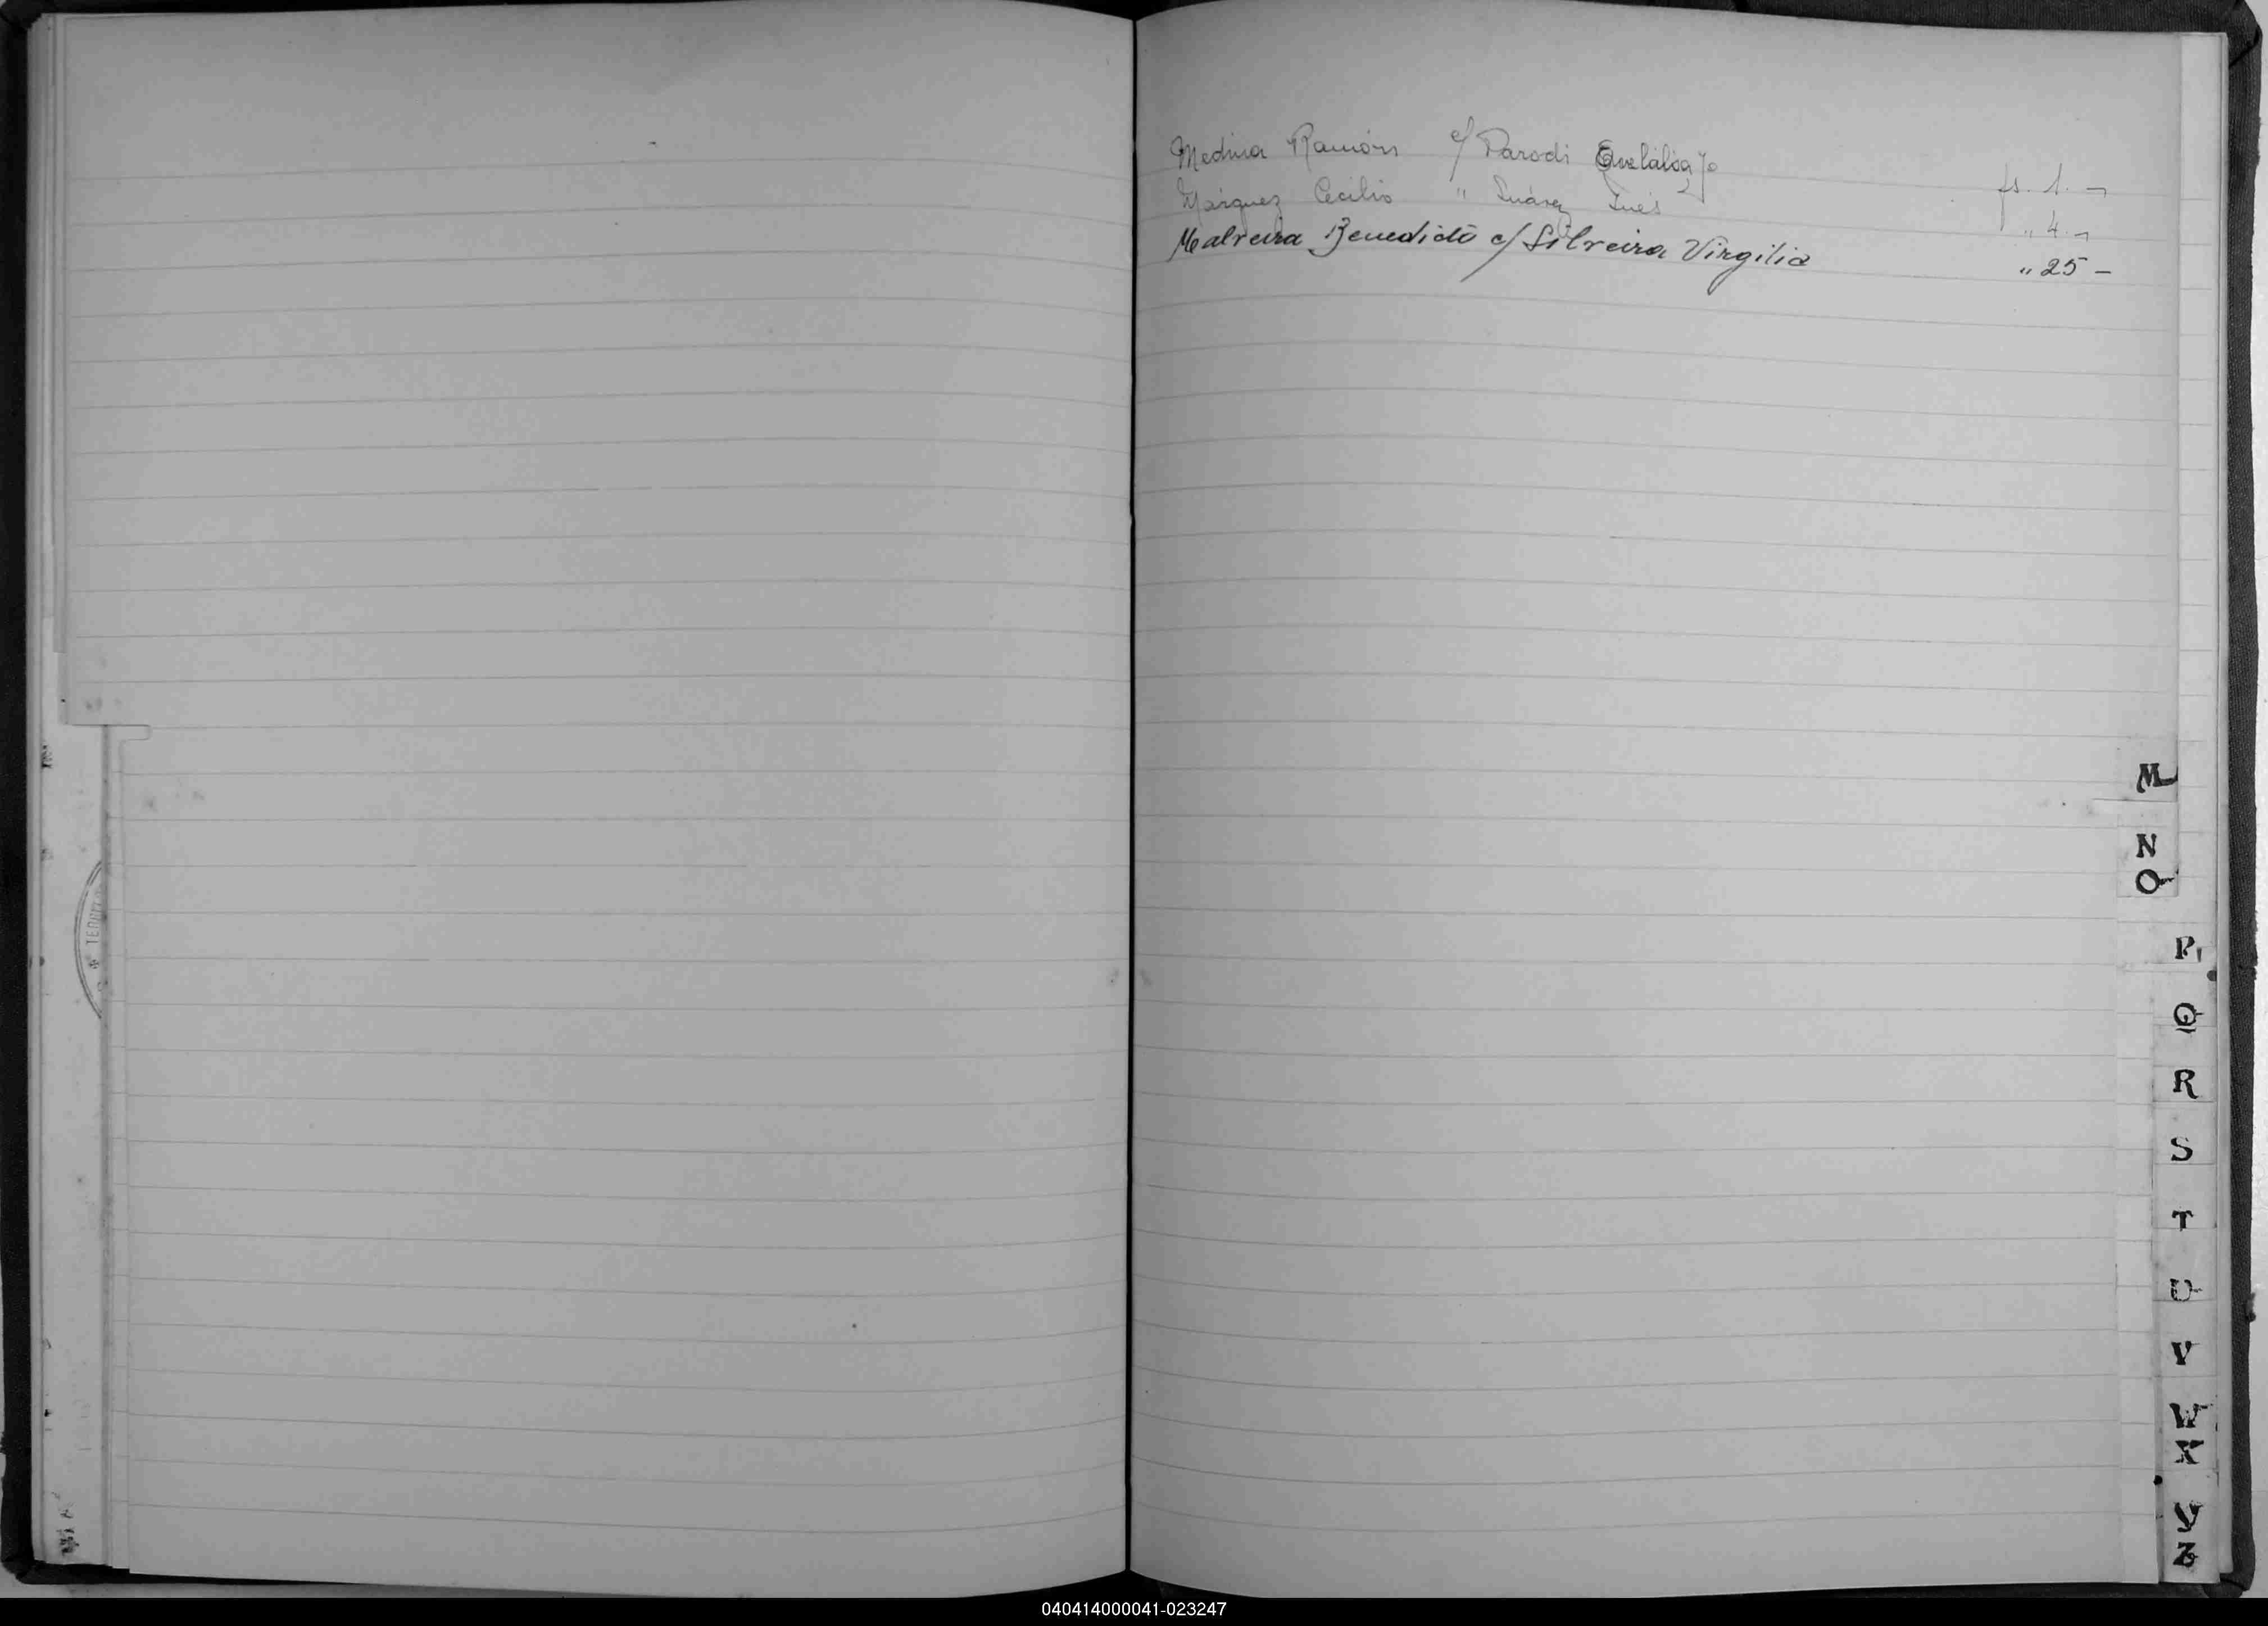 Medina Ramón c/ Parodi fs. 1. -
Márquez Cecilio " Suárez Inés " 4. -
Malveira Benedicto c/ Silveira Virgilia " 25 -
M
N
O
P
Q
R
S
T
U
V
W
X
Y
Z
040414000041-023247